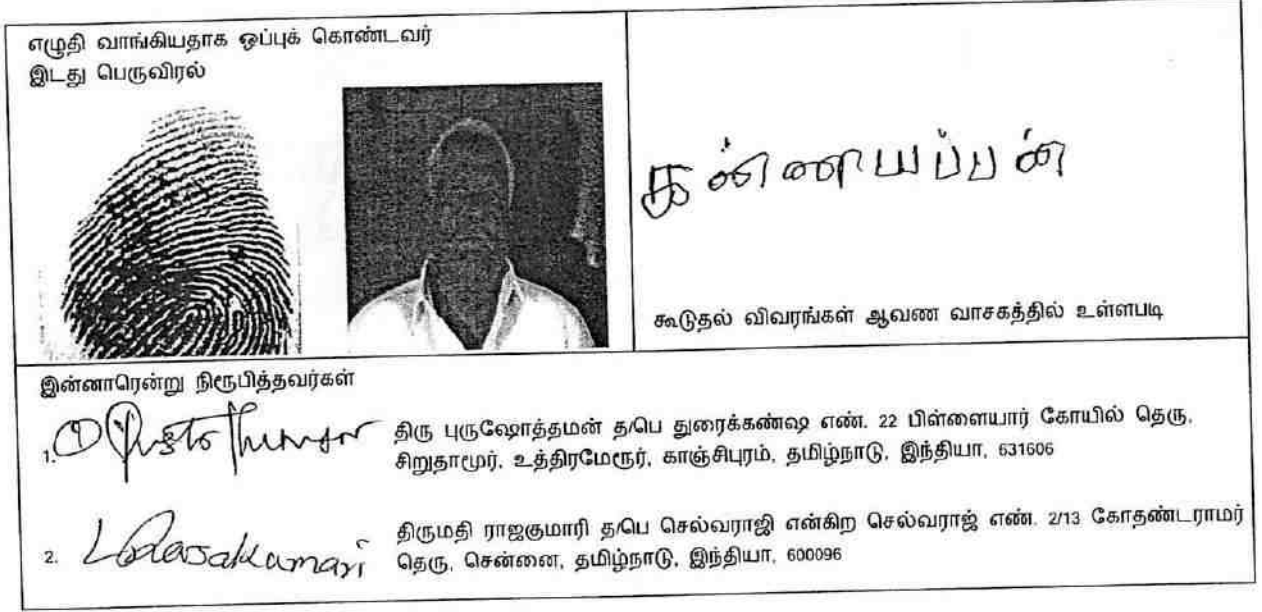 எழுதி வாங்கியதாக ஒப்புக் கொண்டவர்
இடது பெருவிரல்
கண்ணயப்பன்
கூடுதல் விவரங்கள் ஆவண வாசகத்தில் உள்ளபடி
இன்னாரென்று நிரூபித்தவர்கள்
1.
திரு புருஷோத்தமன் த/பெ துரைக்கண்ஷ எண். 22 பிள்ளையார் கோயில் தெரு,
சிறுதாமூர், உத்திரமேரூர், காஞ்சிபுரம், தமிழ்நாடு, இந்தியா, 631606
2.
திருமதி ராஜகுமாரி த/பெ செல்வராஜி என்கிற செல்வராஜ் எண். 2/13 கோதண்டராமர்
தெரு, சென்னை, தமிழ்நாடு, இந்தியா, 600096